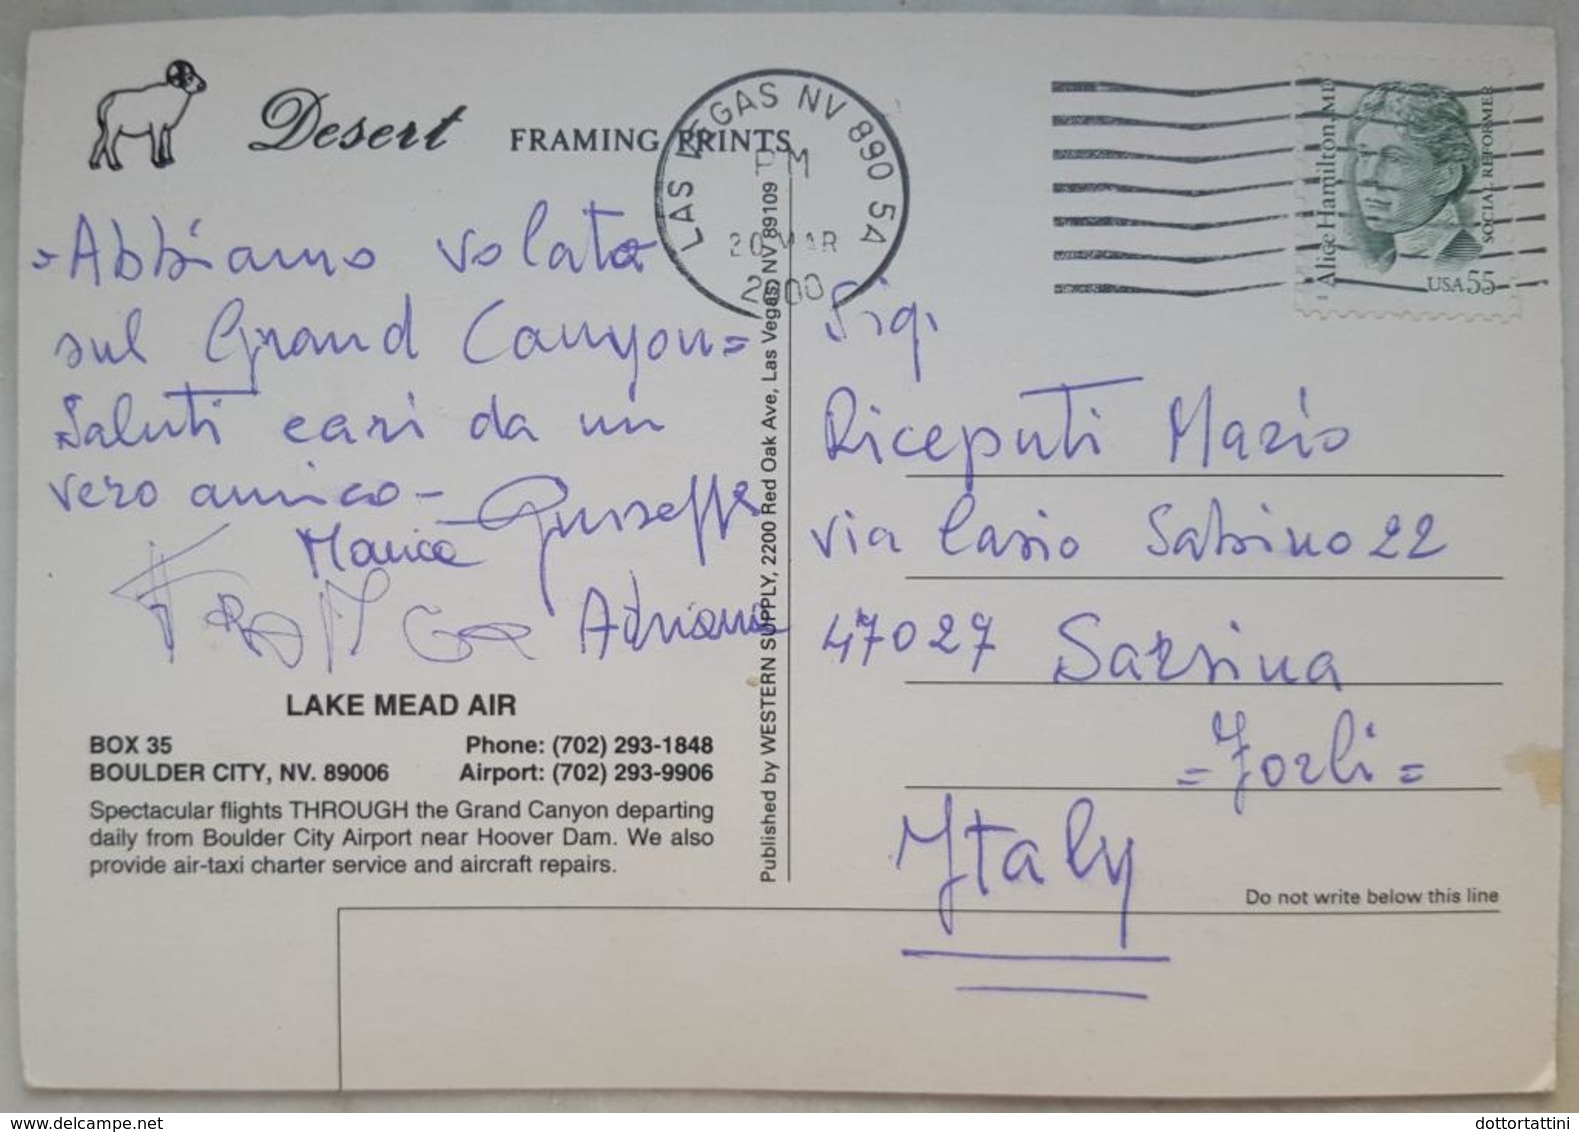 Desert FRAMING PRINTS
LAS VEGAS NV 890 5A
PM
20 MAR
2000
Alice Hamilton, MD
SOCIAL REFORMER
USA 55
=Abbiamo volato
sul Grand Canyon=
Saluti cari da un
vero amico-
Giuseppe
Marica
Adriana
LAKE MEAD AIR
BOX 35
BOULDER CITY, NV. 89006
Phone: (702) 293-1848
Airport: (702) 293-9906
Spectacular flights THROUGH the Grand Canyon departing
daily from Boulder City Airport near Hoover Dam. We also
provide air-taxi charter service and aircraft repairs.
Published by WESTERN SUPPLY, 2200 Red Oak Ave, Las Vegas, NV 89109
Sig.
Riceputi Mario
via Casio Sabino 22
47027 Sarsina
=Forli=
Italy
Do not write below this line
dottortattini